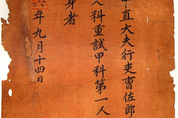 中直大夫行吏曹佐郎
文科重試甲科第一人
身者
六年九月十四日